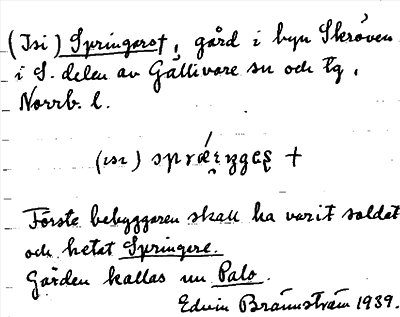 (Isi) Springarst, gård i byn Skröven
i S. delen av Gällivare sn och tg,
Norrb. l.
Förste bebyggaren skall ha varit soldat
och hetat Springere.
Gården kallas nu Palo.
Edvin Brännström 1939.